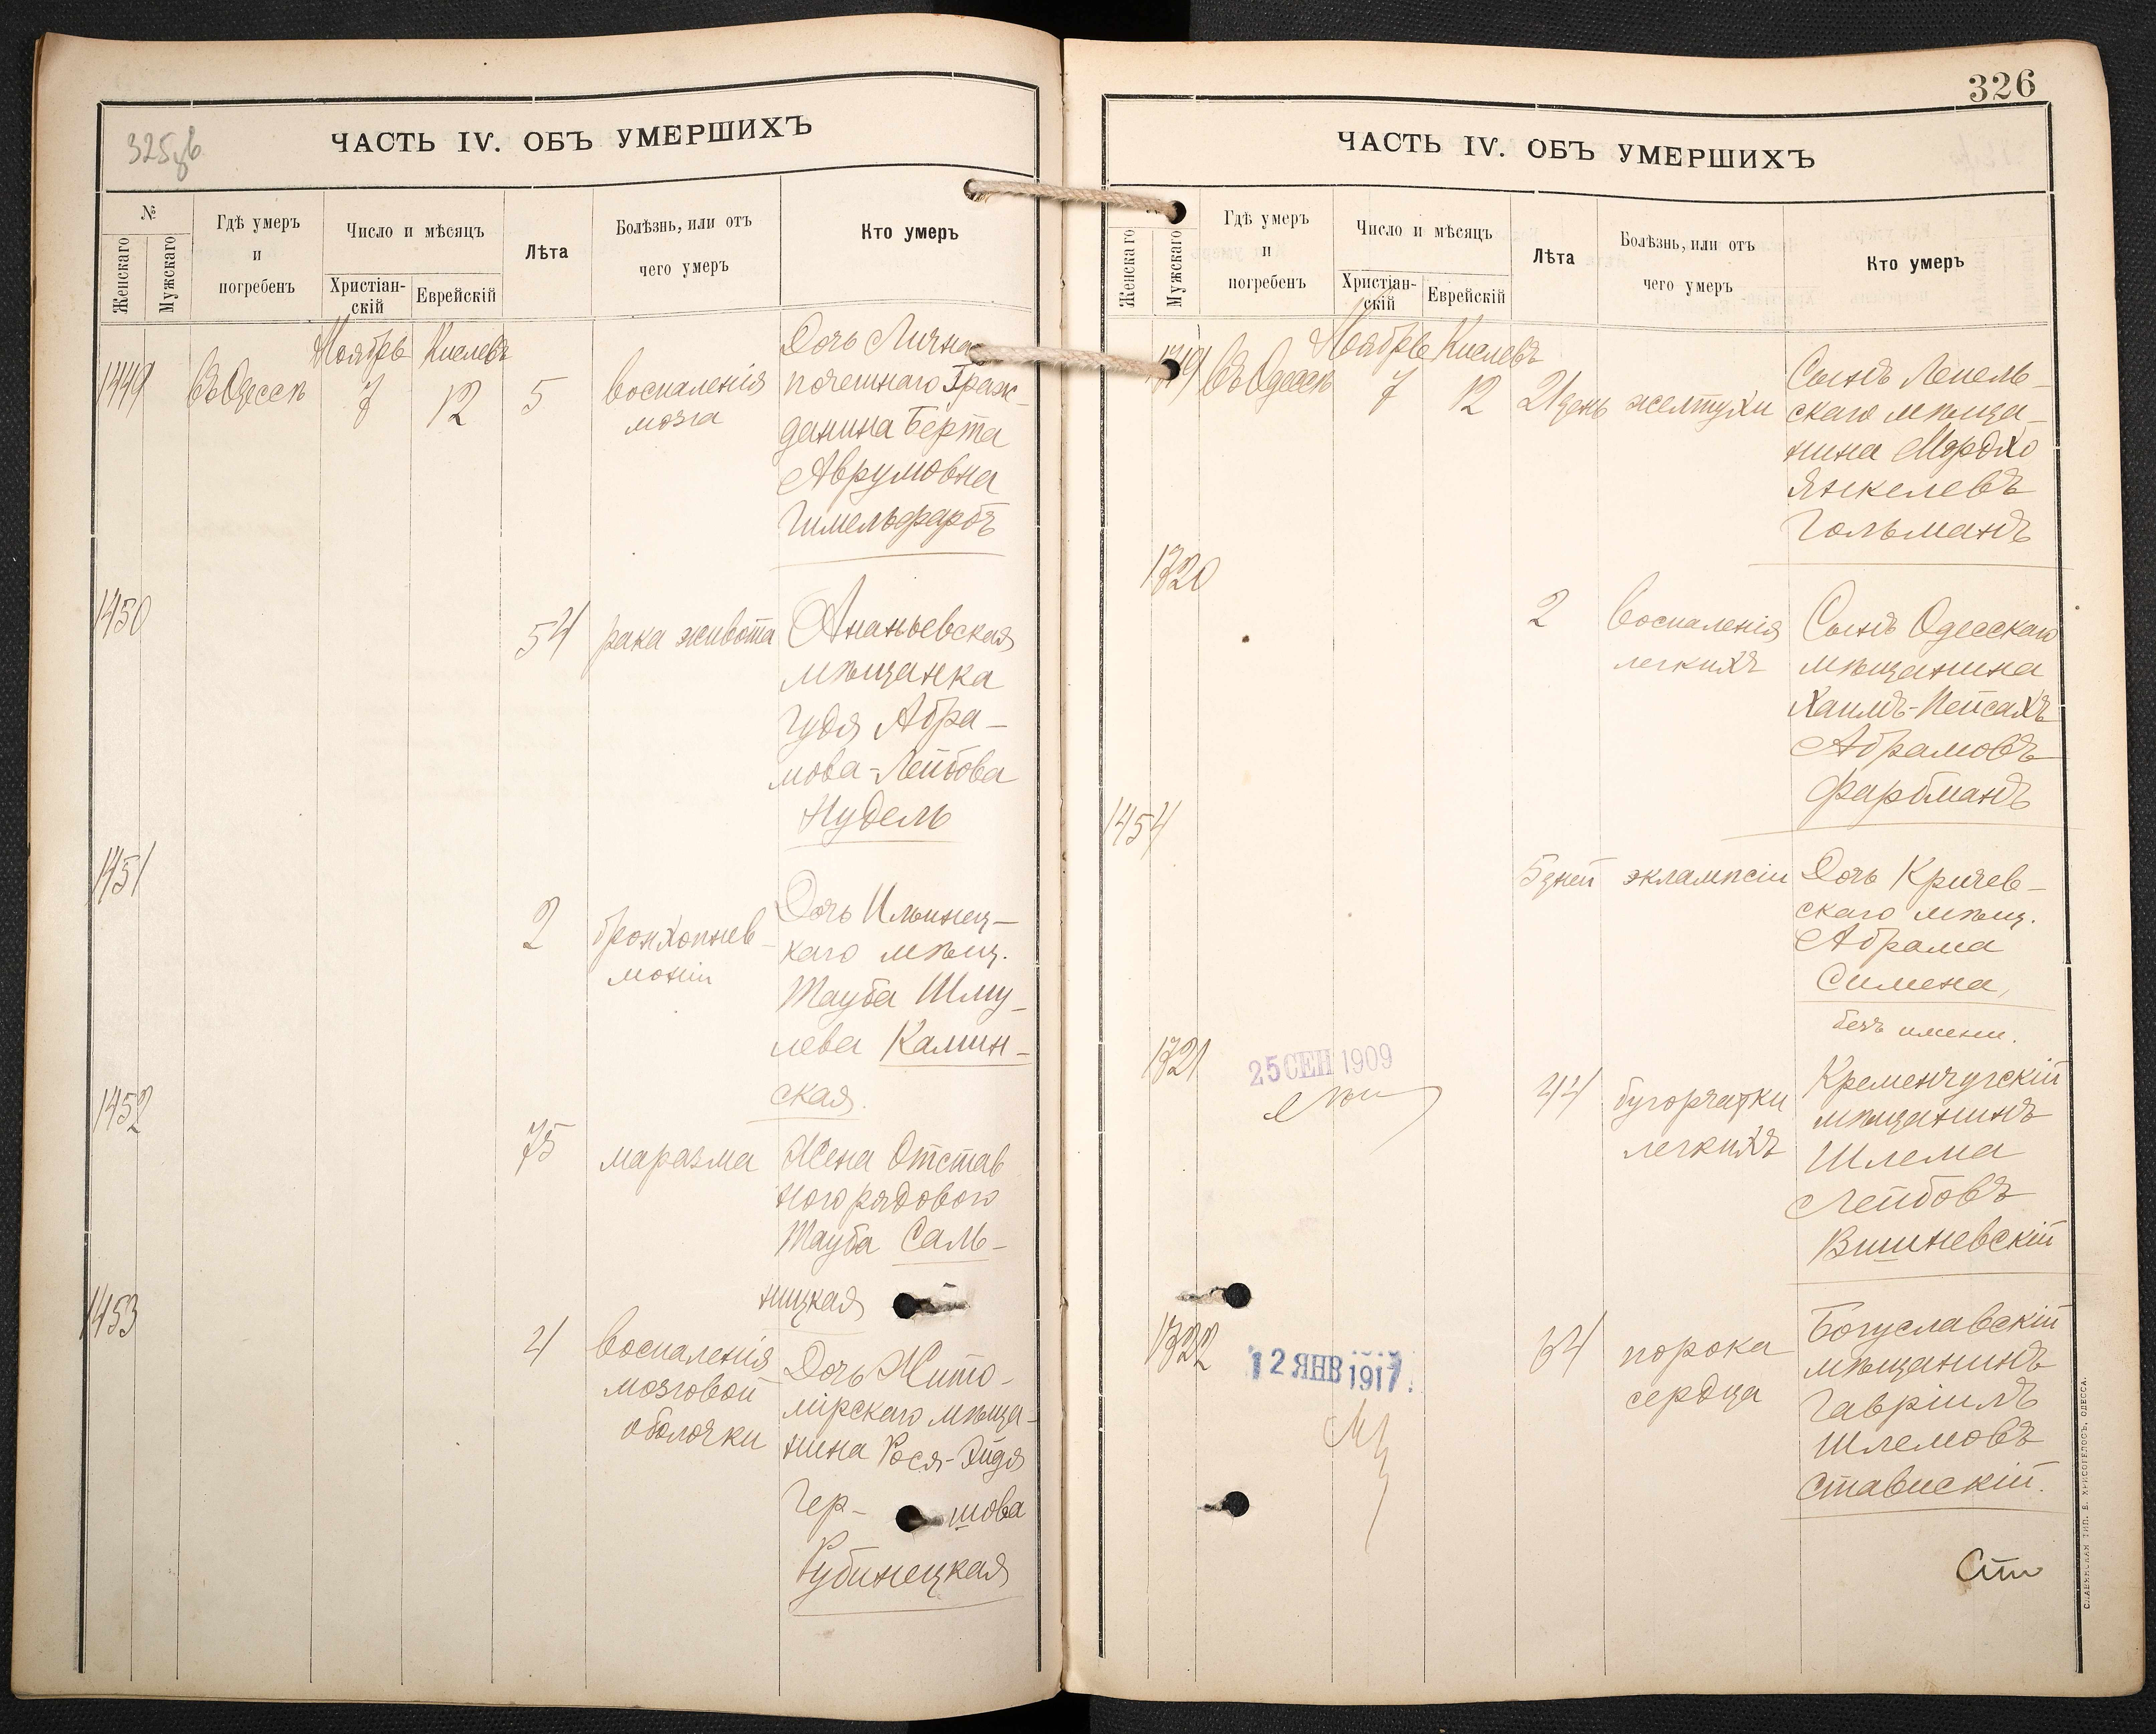 325 об
ЧАСТЬ IV. ОБЪ УМЕРШИХЪ
№
Женскаго
Мужскаго
Гдѣ умеръ
и
погребенъ
Число и мѣсяцъ
Христіан-
скій
Еврейскій
Лѣта
Болѣзнь, или отъ
чего умеръ
Кто умеръ
Ноябрь Кислевъ
1449 Въ Одессѣ 7 12 5 воспаленія
мозга
Дочь Лична
почетнаго Граж-
данина Берта
Аврумовна
Гимельфарбъ
1450
54 рака живота Ананьевская
мѣщанка
Гудя Абра-
мова-Лейбова
Нудель
1451
2 бронхопнев-
моніи
Дочь Ильинец-
каго мѣщ.
Тауба Шму-
лева Камин-
ская.
1452
75 маразма Жена Отстав
ного рядового
Тауба Саль-
ницкая
1453
4 воспаленія
мозговой
оболочки
Дочь Жито-
мірскаго мѣща-
нина Рося-Эйдя
Гер- шова
Рубинецкая
326
ЧАСТЬ IV. ОБЪ УМЕРШИХЪ
Женскаго
Мужскаго
Гдѣ умеръ
и
погребенъ
Число и мѣсяцъ
Христіан-
скій
Еврейскій
Лѣта
Болѣзнь, или отъ
чего умеръ
Кто умеръ
Ноябрь Кислевъ
1319 Въ Одессѣ 7 12 21 день желтухи
Сынъ Лепель-
скаго мѣща-
нина Мордхо
Янкелевъ
Гольманъ
1320
2 воспаленія
легкихъ
Сынъ Одесскаго
мѣщанина
Хаимъ-Пейсахъ
Абрамовъ
Фарбманъ
1454
5 дней эклампсіи Дочь Кричев-
скаго мѣщ.
Абрама
Симена,
безъ имени.
1321
25 СЕН 1909
44 бугорчатки
легкихъ
Кременчугскій
мѣщанинъ
Шлема
Лейбовъ
Вишневскій
1322
12 ЯНВ 1917.
64 порока
сердца
Богуславскій
мѣщанинъ
Гавріилъ
Шлемовъ
Ставискій.
Сто
СЛАВЯНСКАЯ ТИП. Е. ХРИСОГЕЛОСЪ, ОДЕССА.